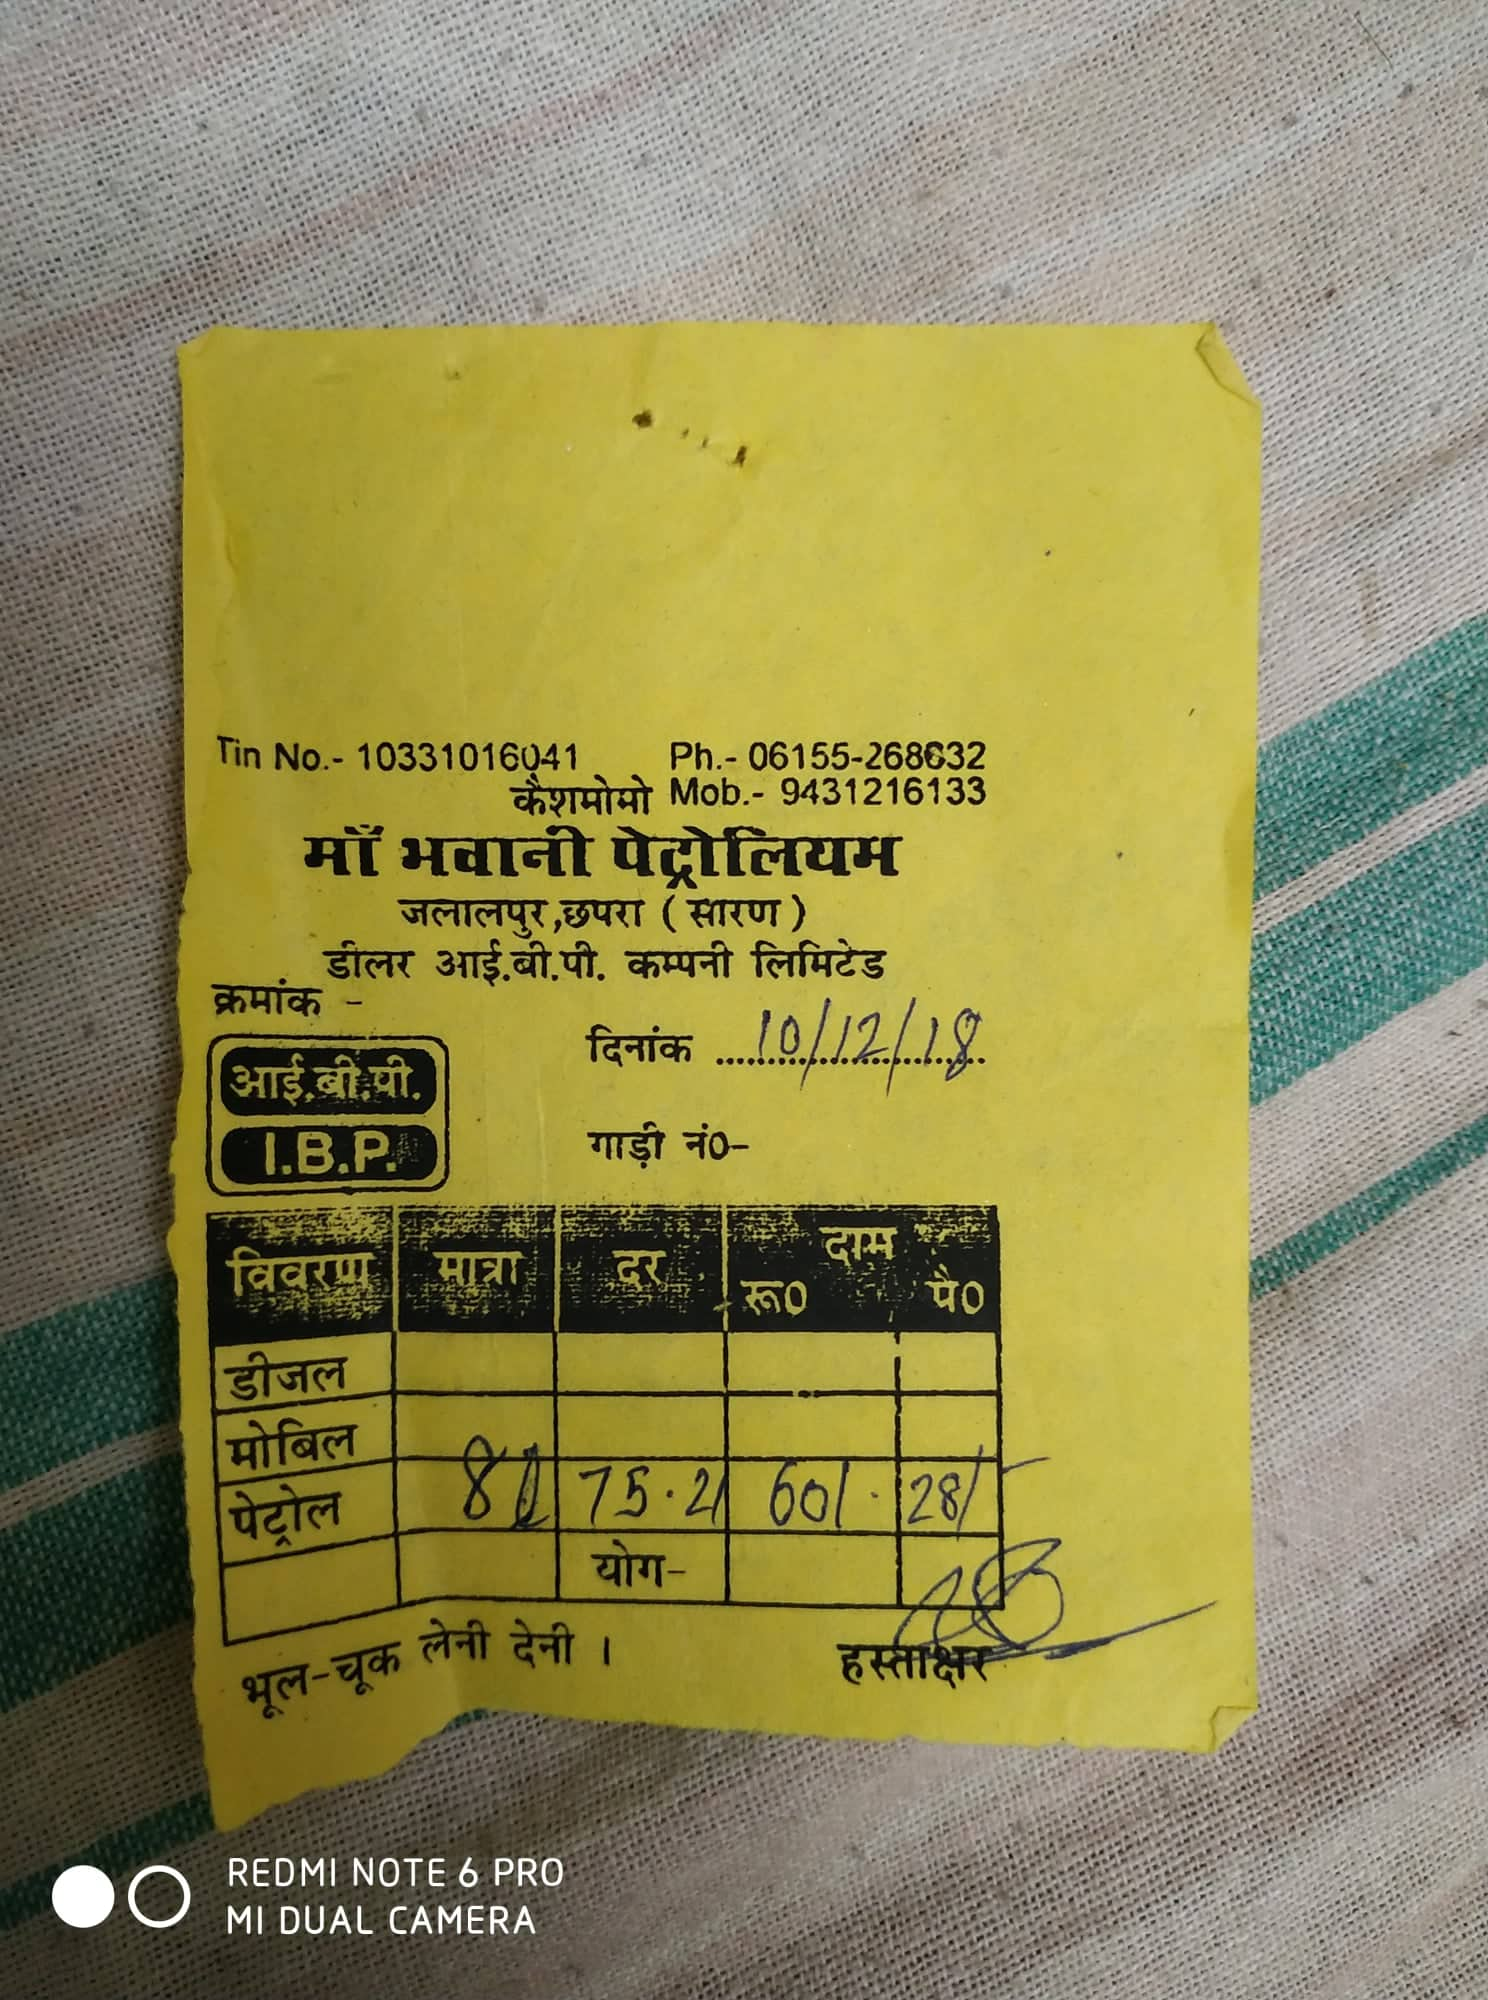 Tin No.- 10331016041 Ph.- 06155-268632
कैशमोमो Mob.- 9431216133
माँ भवानी पेट्रोलियम
जलालपुर,छपरा ( सारण )
डीलर आई.बी.पी. कम्पनी लिमिटेड
क्रमांक -
दिनांक 10/12/18
आई.बी.पी.
I.B.P.
गाड़ी नं0-
विवरण मात्रा दर दाम
रू0 पै0
डीजल
मोबिल
पेट्रोल 8l 75.21 601. 28/-
योग-
भूल-चूक लेनी देनी ।
हस्ताक्षर
REDMI NOTE 6 PRO
MI DUAL CAMERA